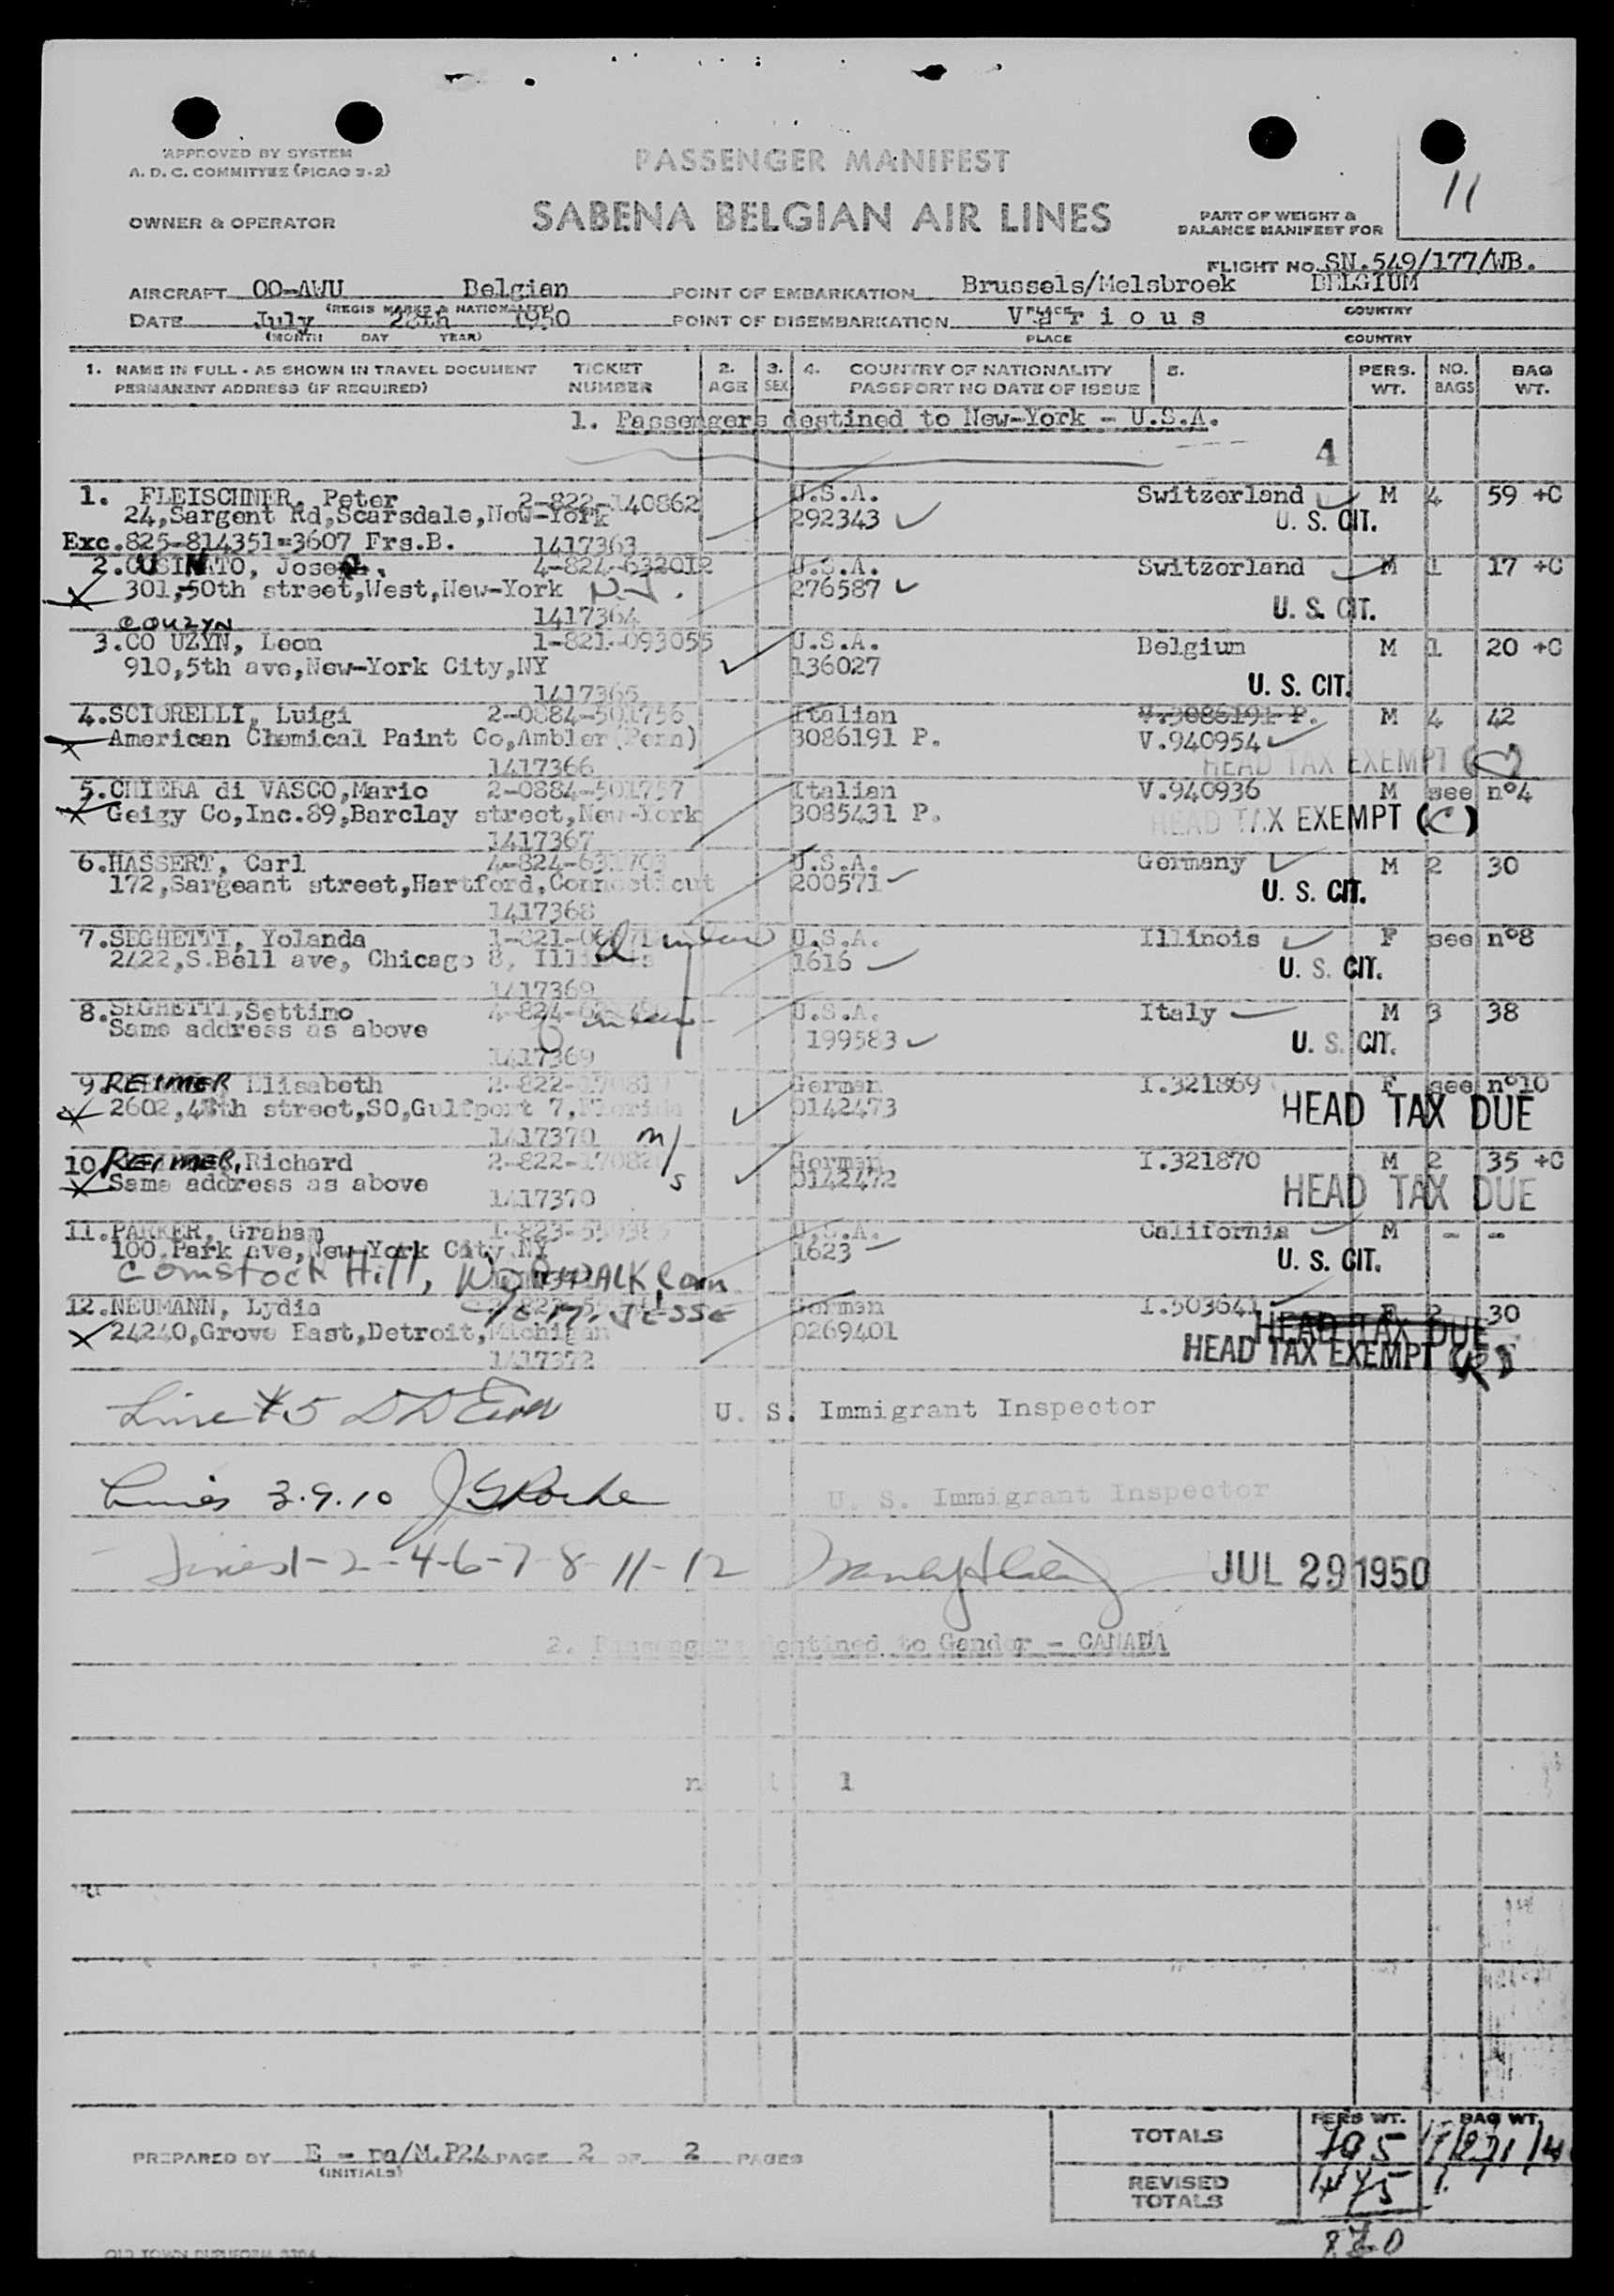 APPROVED BY SYSTEM
A. D. C. COMMITTEE (PICAO 3-2)
PASSENGER MANIFEST
11
OWNER & OPERATOR
SABENA BELGIAN AIR LINES
PART OF WEIGHT &
BALANCE MANIFEST FOR
FLIGHT NO. SN.549/177/WB.
AIRCRAFT OO-AWU Belgian POINT OF EMBARKATION Brussels/Melsbroek BELGIUM
(REGIS MARKS & NATIONALITY) PLACE COUNTRY
DATE July 28th 1950 POINT OF DISEMBARKATION Various
(MONTH DAY YEAR) PLACE COUNTRY
1. NAME IN FULL - AS SHOWN IN TRAVEL DOCUMENT TICKET 2. 3. 4. COUNTRY OF NATIONALITY 5. PERS. NO. BAG
PERMANENT ADDRESS (IF REQUIRED) NUMBER AGE SEX PASSPORT NO DATE OF ISSUE WT. BAGS WT.
1. Passengers destined to New-York - U.S.A.
4
1. FLEISCHNER, Peter 2-822-140862 U.S.A. Switzerland M 4 59 +C
24,Sargent Rd,Scarsdale,New-York 292343 U. S. CIT.
Exc.825-814351=3607 Frs.B. 1417363
2.CUSINATO, Joseph. 4-824-632012 U.S.A. Switzerland M 1 17 +C
301,50th street,West,New-York N.J. 276587 U. S. CIT.
1417364
COUZYN
3.CO UZYN, Leon 1-821-093055 U.S.A. Belgium M 1 20 +C
910,5th ave,New-York City,NY 136027
1417365 U. S. CIT.
4.SCIORELLI, Luigi 2-0884-501756 Italian V.3086191 P. M 4 42
American Chemical Paint Co,Ambler(Penn) 3086191 P. V.940954
1417366 HEAD TAX EXEMPT (C)
5.CHIERA di VASCO,Mario 2-0884-501757 Italian V.940936 M see n°4
Geigy Co,Inc.89,Barclay street,New-York 3085431 P. HEAD TAX EXEMPT (C)
1417367
6.HASSERT, Carl 4-824-631703 U.S.A. Germany M 2 30
172,Sargeant street,Hartford,Connecticut 200571 U. S. CIT.
1417368
7.SEGHETTI, Yolanda U.S.A. Illinois F see n°8
2422,S.Bell ave, Chicago 8, Illinois 1616 U. S. CIT.
1417369
8.SEGHETTI,Settimo U.S.A. Italy M 3 38
Same address as above 199583 U. S. CIT.
1417369
9 REIMER Elisabeth German I.321869 F see n°10
2602,48th street,SO,Gulfport 7,Florida 0142473 HEAD TAX DUE
1417370
10 REIMER, Richard German I.321870 M 2 35 +C
Same address as above 0142472 HEAD TAX DUE
1417370
11.PARKER, Graham U.S.A. California M - -
100 Park ave,New-York City NY 1623 U. S. CIT.
Comstock Hill, NORWALK Conn
12.NEUMANN, Lydia JESSE German I.503641 F 2 30
24240,Grove East,Detroit,Michigan 0269401 HEAD TAX DUE
1417372 HEAD TAX EXEMPT
Line #5 U. S. Immigrant Inspector
Lines 3.9.10 U. S. Immigrant Inspector
Lines 1-2-4-6-7-8-11-12 JUL 29 1950
2. Passengers destined to Gander - CANADA
n 1
TOTALS PERS WT. BAG WT.
PREPARED BY E - no/M.P24 PAGE 2 OF 2 PAGES
(INITIALS)
REVISED
TOTALS